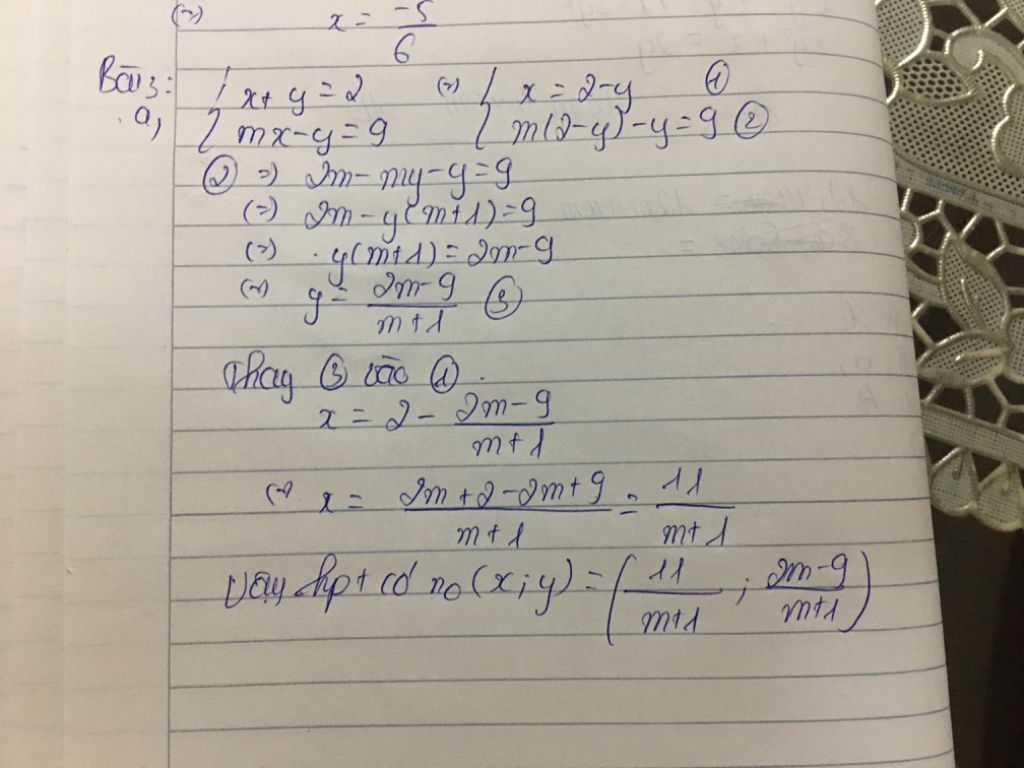 (=) x = -5/6
Bài 3:
a, { x + y = 2 (=) { x = 2 - y ①
{ mx - y = 9 { m(2 - y) - y = 9 ②
② => 2m - my - y = 9
(=) 2m - y(m+1) = 9
(=) y(m+1) = 2m - 9
(=) y = (2m - 9)/(m+1) ③
Thay ③ vào ①.
x = 2 - (2m - 9)/(m+1)
(=) x = (2m + 2 - 2m + 9)/(m+1) = 11/(m+1)
Vậy hpt có no (x; y) = (11/(m+1) ; (2m-9)/(m+1))